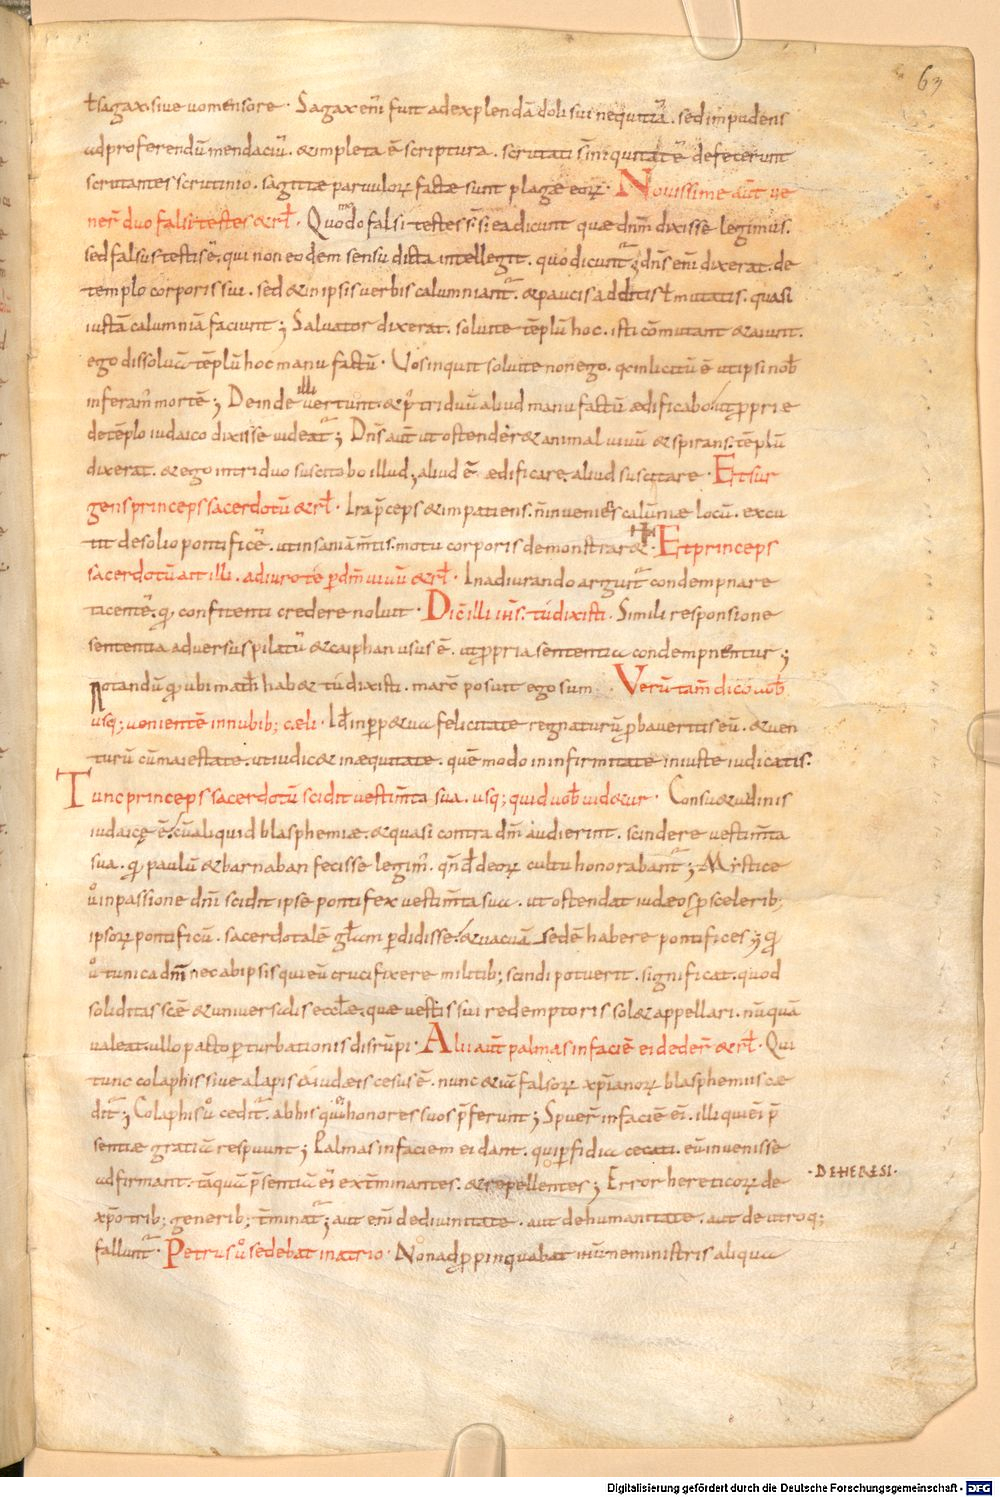 63
ł sagax. sive vomensore · Sagax eni᷒ fuit ad explendā doli sui nequitiā. sed impudens
ad proferendū mendaciū. & impleta ē scriptura. scrutati sł iniquitatē defecerunt
scrutantes scrutinio. sagittae parvuloꝝ factae sunt plagae eoꝝ · Novissime aūt ve
ner̄ duo falsi testes & rł · Quomodo falsi testes s̄. si ea dicunt quae dn̄m dixisse legimus.
sed falsus testis ē. qui non eodem sensu dicta intellegit. quo dicunt᷒; dn̄s eni᷒ dixerat. de
templo corporis sui. sed & in ipsis verbis calumniant᷒. & paucis additis ł mutatis. quasi
iustā calumniā faciunt; Salvator dixerat. solvite tēplū hoc. isti cōmutant & aiunt.
ego dissolvā tēplū hoc manu factū · Vos inquit solvite non ego. q inlicitū ē ut ipsi nob̄
inferam᷒ mortē; Deinde illi vertunt. & p᷒ triduū aliud manu factū aedificabo. ut ꝓprie
de tēplo iudaico dixisse videat᷒; Dn̄s aūt ut ostender& animal vivū & spirans. tēplū
dixerat. & ego in triduo suscitabo illud, aliud ē aedificare. aliud suscitare · Et sur
gens princeps sacerdotū & rł · Ira p̄ceps & impatiens. n̄ inveniens calūniae locū. excu
tit de solio pontificē. ut insaniā m̄tis. motu corporis demonstrar& · Et princeps
sacerdotū ait illi. adiuro te ꝑ dm̄ vivū & rł · In adiurando arguit᷒ condempnare
tacentē. q̨ confitenti credere noluit · Dic̄ illi ih̄s. tu dixisti. Simili responsione
sententia adversus pilatū & caiphan usus ē. ut ꝓpria sententia condempnentur;
Notandū q̨ ubi math̄ hab& tu dixisti. marc̄ posuit ego sum · Verū tam̄ dico vob̄
usq; venientē in nubib; caeli · Id̄ in ꝑp&ua felicitate regnaturū ꝓbavertis eū. & ven
turū cū maiestate. ut iudic& in aequitate. quē modo in infirmitate iniuste iudicatis.
Tunc princeps sacerdotū scidit vestim̄ta sua. usq; quid vob̄ vid&ur · Consu&udinis
iudaicę ē. cū aliquid blasphemiae. & quasi contra dm̄ audierint. scindere vestim̄ta
sua. q̨ paulū & barnaban fecisse legim᷒. qn̄do deoꝝ cultu honorabant᷒; Mystice
v̊ in passione dn̄i scidit ipse pontifex vestim̄ta sua. ut ostendat iudaeos ꝓ sceleribꝫ
ipsoꝝ pontificū. sacerdotalē głam ꝑdidisse. & vacuā sedē habere pontifices; q̨
v̊ tunica dn̄i nec ab ipsis qui eū crucifixere militib; scindi potuerit. significat. quod
soliditas scē & universalis eccłae. quae vestis sui redemptoris sol& appellari. nūquā
valeat. ullo pacto ꝑturbationis disrūpi · Alii aūt palmas in faciē ei deder̄ & rł · Qui
tunc colaphis sive alapis a iudaeis cesus ē. nunc & iā falsoꝝ xp̄ianoꝝ blasphemiis cae
dit᷒; Colaphis v̊ cedit᷒. ab his qui honores suos p̄ferunt; Spuer̄ in faciē ei᷒. illi qui ei᷒ p̄
sentiae gratiā respuunt; Palmas in faciem ei dant. qui ꝑfidia cecati. eū invenisse
adfirmant. tāquā p̄sentiā ei᷒ ext̄minantes. & repellentes; Error hereticoꝝ de
· DE HERESI ·
xp̄o trib; generib; t̄minat᷒; aut eni᷒ de divinitate. aut de humanitate. aut de utroq;
fallunt᷒ · Petrus v̊ sedebat in atrio · Non adꝓpinquabat ih̄m ne ministris aliqua